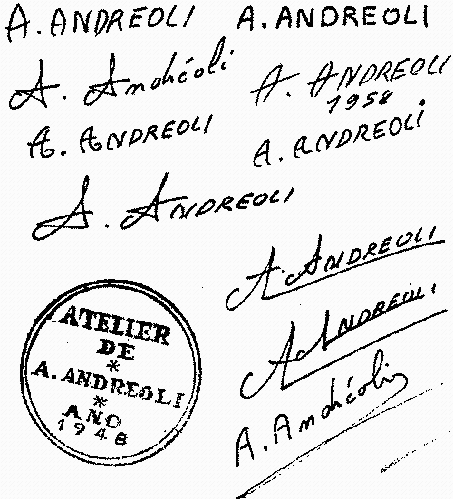 A. ANDREOLI
A. ANDREOLI
A. Andréoli
A. ANDREOLI
1958
A. ANDREOLI
A. ANDREOLI
A. ANDREOLI
A. ANDREOLI
A ANDREOLI
A. Andréoli
ATELIER
DE
*
A. ANDREOLI
*
ANO
1948